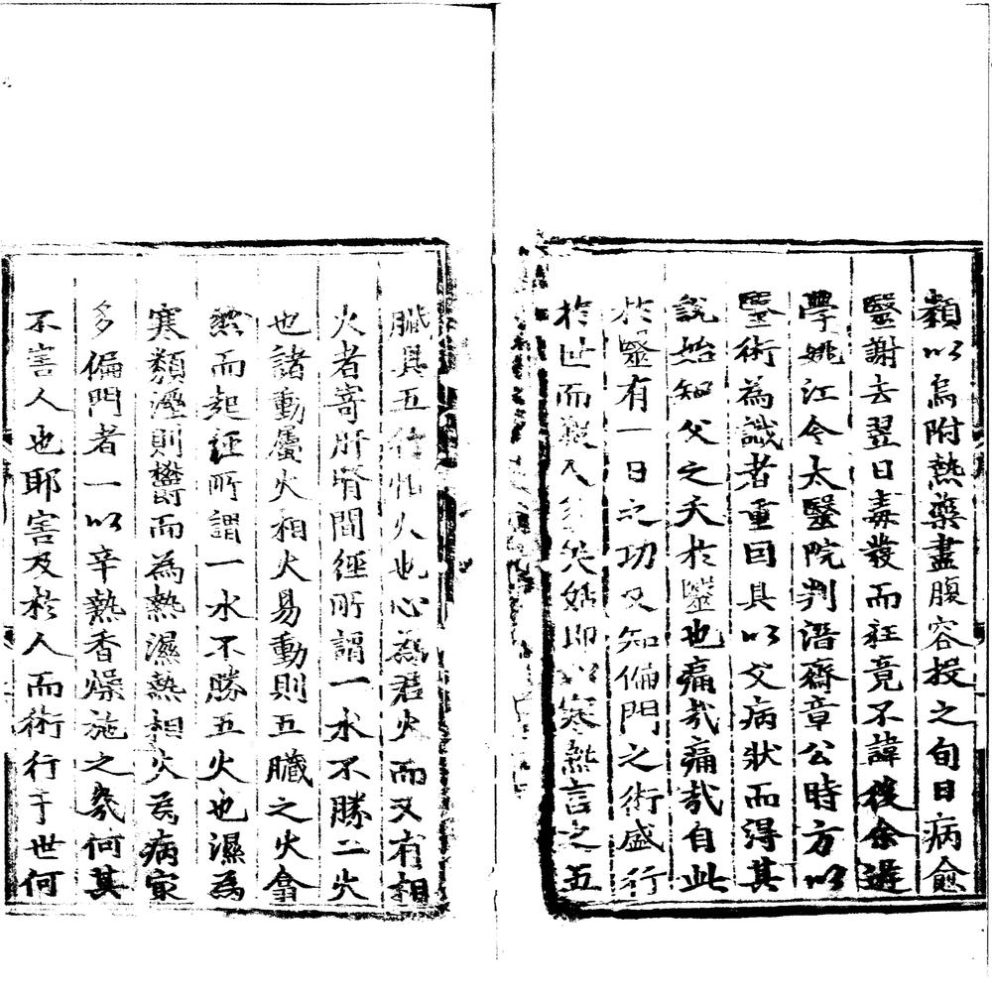 類以烏附熱藥盡腹容投之旬日病愈
毉謝去翌日毒發而狂竟不諱後余遊
學姚江令太毉院判潛齋章公時方以
毉術為識者重因具以父病狀而得其
說始知父之夭於毉也痛㢤痛㢤自此
於毉有一日之功又知偏門之術盛行
於世而 即以寒熱言之五
臟具五 火也心為君火而又有相
火者寄肝腎間經所謂一水不勝二火
也諸動屬火相火易動則五臟之火翕
然而起經所謂一水不勝五火也濕為
寒類溼則欝而為熱濕熱相火為病最
多偏門者一以辛熱香燥施之幾何其
不害人也耶害及於人而術行于世何